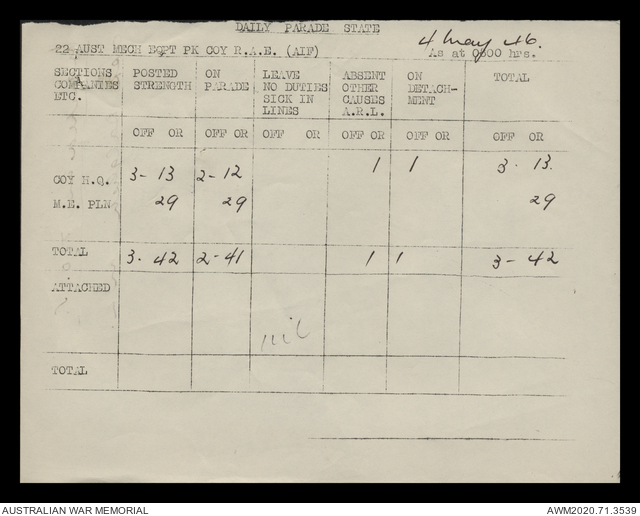 DAILY PARADE STATE
4 May 46.
22 AUST MECH EQPT PK COY R.A.E. (AIF) As at 0600 hrs.
SECTIONS POSTED ON LEAVE ABSENT ON TOTAL
COMPANIES STRENGTH PARADE NO DUTIES OTHER DETACH-
ETC. SICK IN CAUSES MENT
LINES A.R.L.
OFF OR OFF OR OFF OR OFF OR OFF OR OFF OR
COY H.Q. 3- 13 2- 12 1 1 3- 13.
M.E. PLN 29 29 29
TOTAL 3- 42 2- 41 1 1 3- 42
ATTACHED
nil
TOTAL
AUSTRALIAN WAR MEMORIAL AWM2020.71.3539